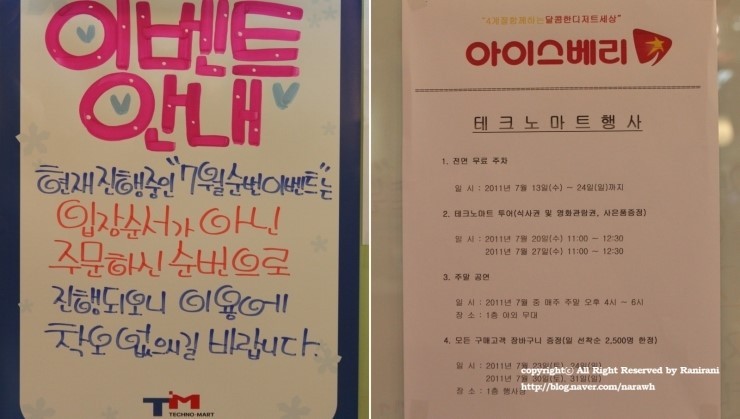 이벤트
안내
현재 진행중인 "7월 순번이벤트"는
입장순서가 아닌
주문하신 순번으로
진행되오니 이용에
착오 없으시길 바랍니다.
TM
TECHNO-MART
"4계절함께하는 달콤한디저트세상"
아이스베리
테크노마트행사
1. 전면 무료 주차
일 시 : 2011년 7월 13일(수) ~ 24일(일)까지
2. 테크노마트 투어(식사권 및 영화관람권, 사은품증정)
일 시 : 2011년 7월 20일(수) 11:00 ~ 12:30
2011년 7월 27일(수) 11:00 ~ 12:30
3. 주말 공연
일 시 : 2011년 7월 중 매주 주말 오후 4시 ~ 6시
장 소 : 1층 야외 무대
4. 모든 구매고객 장바구니 증정(일 선착순 2,500명 한정)
일 시 : 2011년 7월 23일(토), 24일(일)
2011년 7월 30일(토), 31일(일)
장 소 : 1층 행사장
copyright© All Right Reserved by Ranirani
http://blog.naver.com/narawh